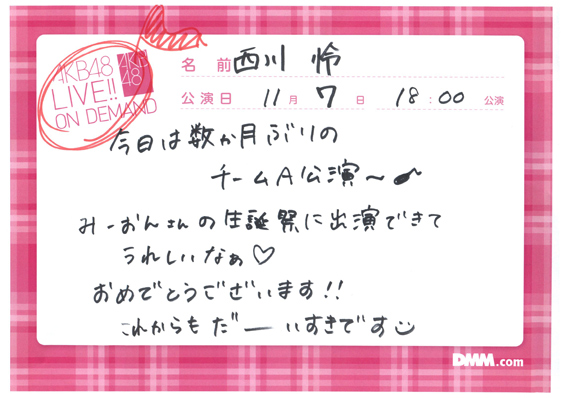 AKB48
LIVE!!
ON DEMAND
AKB
48
名 前 西川 怜
公演日 11月 7日 18:00 公演
今日は数か月ぶりの
チームA公演〜♪
みーおんさんの生誕祭に出演できて
うれしいなぁ♡
おめでとうございます!!
これからもだーいすきです☺
DMM.com